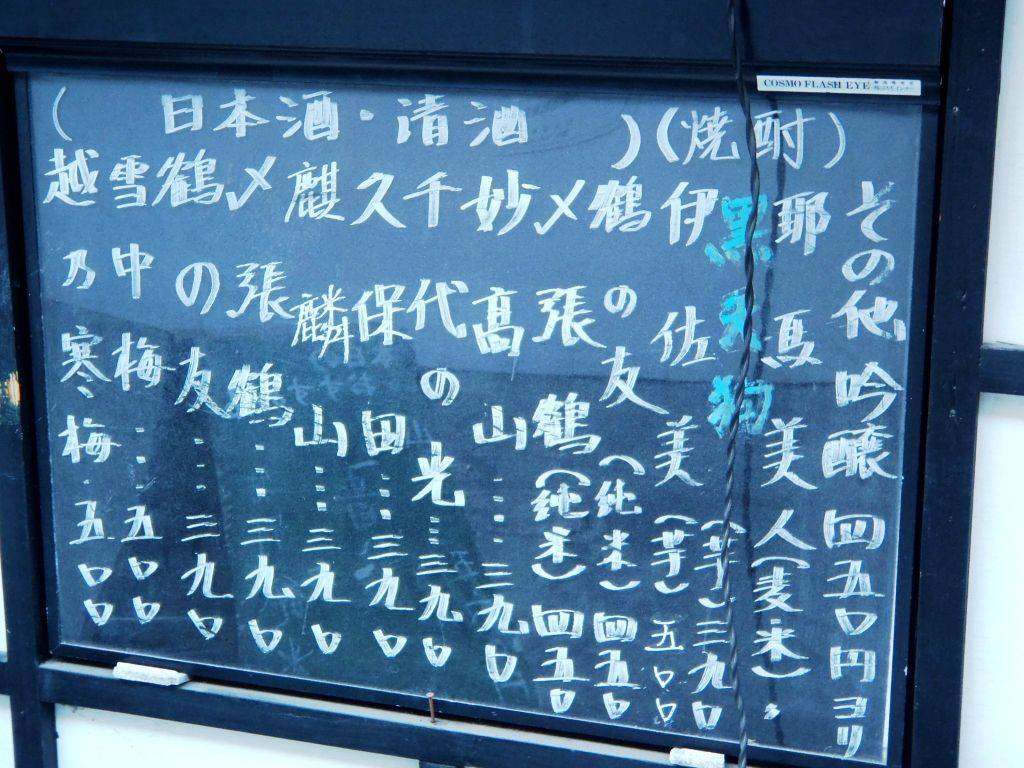 COSMO FLASH EYE
(日本酒・清酒)(焼酎)
その他吟醸四五〇円ヨリ
耶馬美人(麦・米)〃
黒天狗(芋)三九〇
伊佐美(芋)五〇〇
鶴の友(純米)四五〇
〆張鶴(純米)四五〇
妙高山…三九〇
千代の光…三九〇
久保田…三九〇
麒麟山…三九〇
〆張鶴…三九〇
鶴の友…三九〇
雪中梅…五〇〇
越乃寒梅…五〇〇